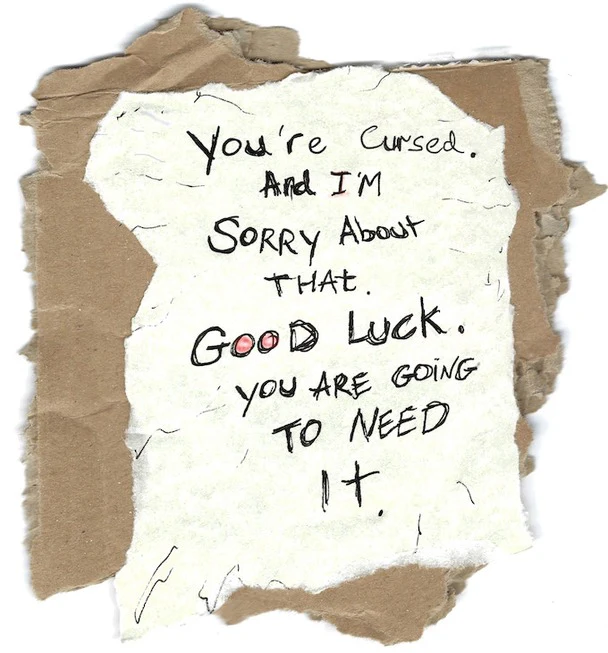 You're Cursed.
And I'M
SORRY About
THAt.
GOOD Luck.
YOU ARE GOiNG
TO NEED
It.